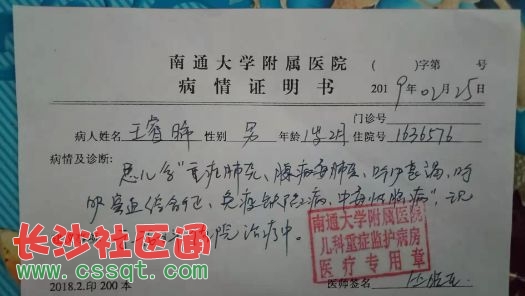 南通大学附属医院 ( )字第 号
病情证明书 2019年02月25日
门诊号
病人姓名 王睿晞 性别 男 年龄 1岁2月 住院号 1636576
病情及诊断:
患儿因"重症肺炎、腺病毒肺炎、呼吸衰竭、呼
吸窘迫综合征、免疫缺陷病、中毒性脑病",现
院治疗中。
南通大学附属医院
儿科重症监护病房
医疗专用章
长沙社区通
www.cssqt.com
2018.2.印200本 医师签名